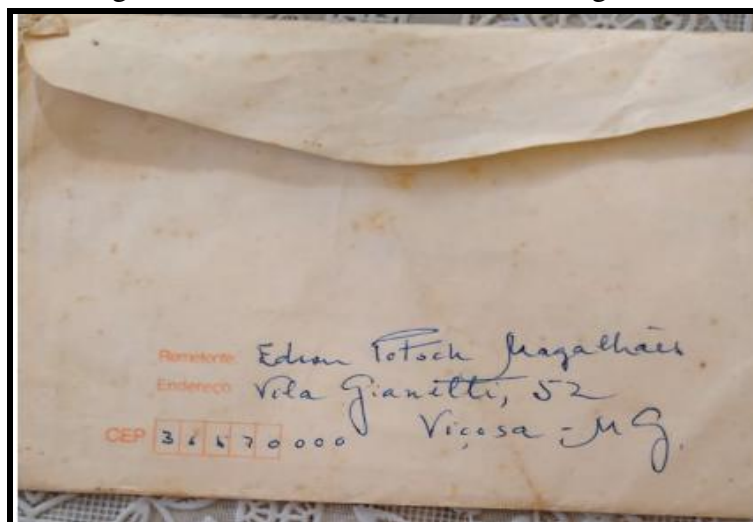 Remetente: Edson Potsch Magalhães
Endereço: Vila Gianetti, 52
CEP 36570000 Viçosa - MG.